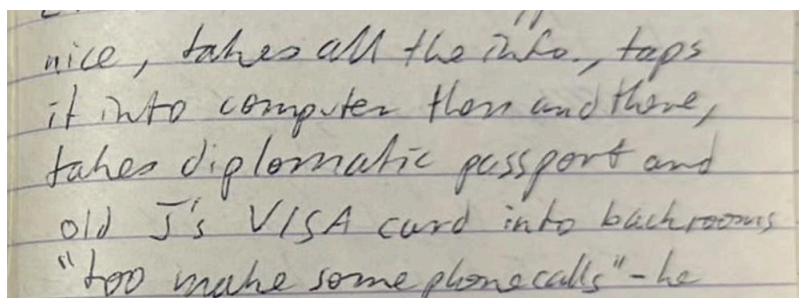 nice, takes all the info., taps
it into computer then and there,
takes diplomatic passport and
old J's VISA card into backrooms
"too make some phonecalls" - he